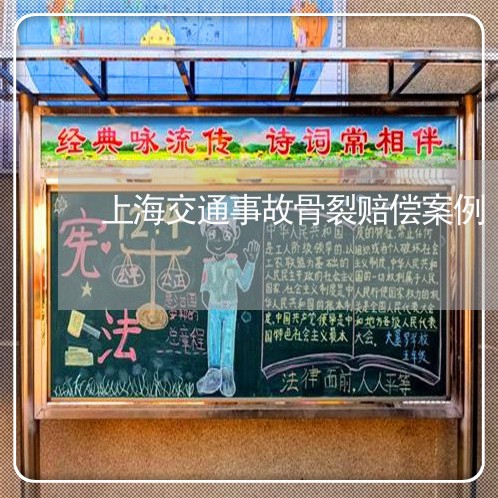 经典咏流传 诗词常相伴
上海交通事故骨裂赔偿案例
宪
法
12.4
公平
公正
总章程
中华人民共和国
是工人阶级领导的,以
工农联盟为基础的
人民民主专政的社会主义
国家,社会主义制度是中
华人民共和国的根本制
度,中国共产党领导是中
国特色社会主义最本
质的特征,禁止任何
组织或者个人破坏社会
主义制度,中华人民共和
国的一切权利属于人民,
人民行使国家权力的机
关是全国人民代表大会
和地方各级人民代表
大会.
五年级
法律面前,人人平等